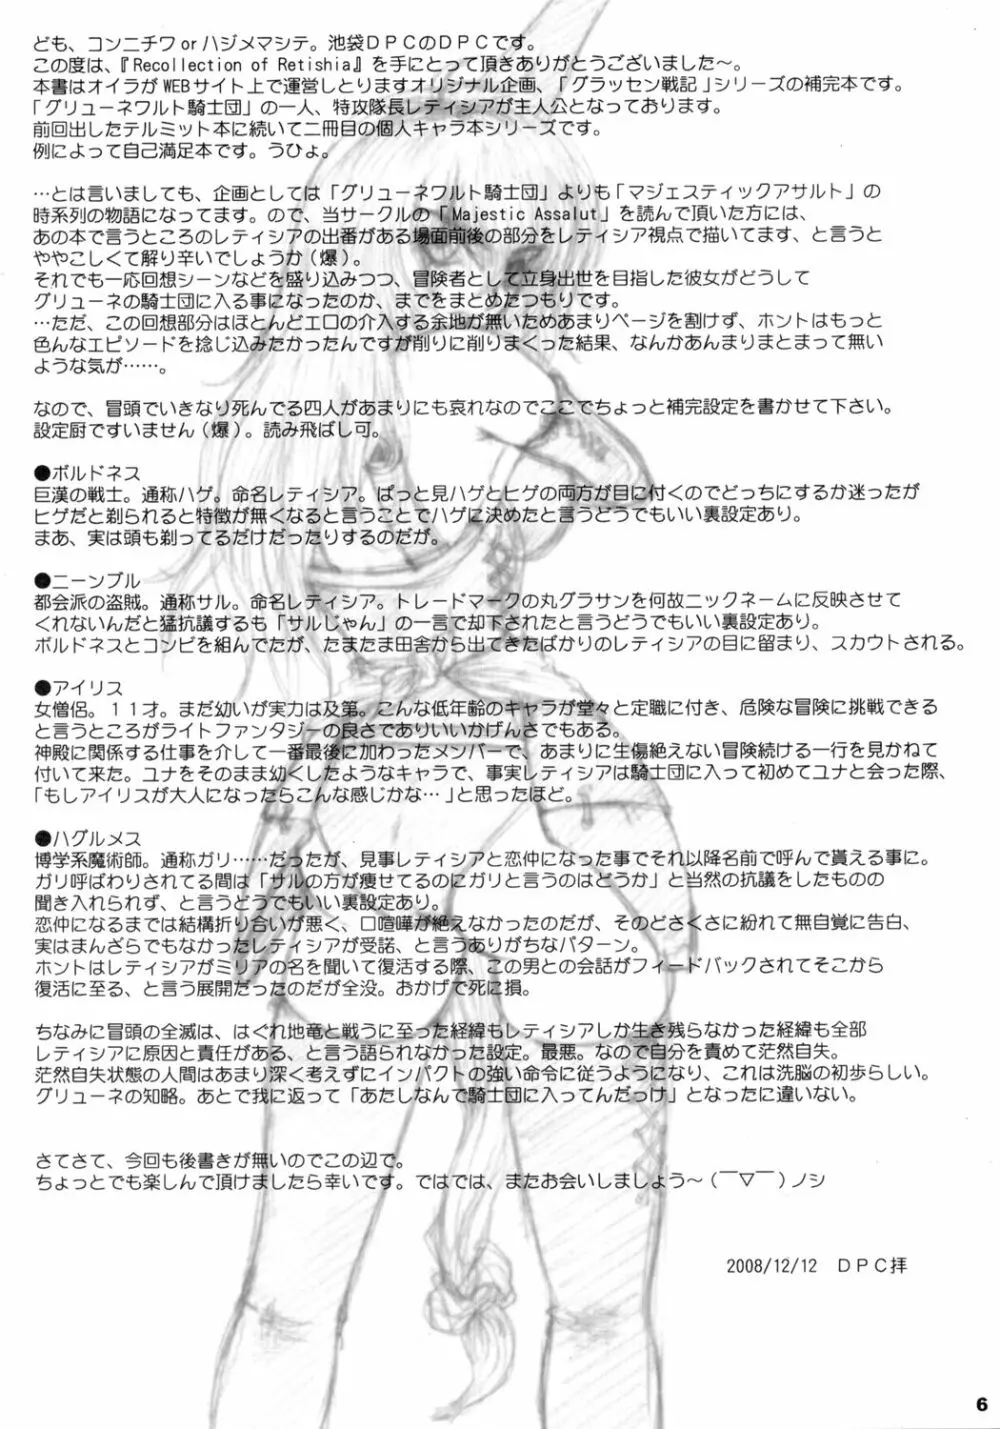 ども、コンニチワorハジメマシテ。池袋ＤＰＣのＤＰＣです。
この度は、『Recollection of Retishia』を手にとって頂きありがとうございました～。
本書はオイラがWEBサイト上で運営しとりますオリジナル企画、「グラッセン戦記」シリーズの補完本です。
「グリューネワルト騎士団」の一人、特攻隊長レティシアが主人公となっております。
前回出したテルミット本に続いて二冊目の個人キャラ本シリーズです。
例によって自己満足本です。うひょ。
…とは言いましても、企画としては「グリューネワルト騎士団」よりも「マジェスティックアサルト」の
時系列の物語になってます。ので、当サークルの「Majestic Assalut」を読んで頂いた方には、
あの本で言うところのレティシアの出番がある場面前後の部分をレティシア視点で描いてます、と言うと
ややこしくて解り辛いでしょうか（爆）。
それでも一応回想シーンなどを盛り込みつつ、冒険者として立身出世を目指した彼女がどうして
グリューネの騎士団に入る事になったのか、までをまとめたつもりです。
…ただ、この回想部分はほとんどエロの介入する余地が無いためあまりページを割けず、ホントはもっと
色んなエピソードを捻じ込みたかったんですが削りに削りまくった結果、なんかあんまりまとまって無い
ような気が……。
なので、冒頭でいきなり死んでる四人があまりにも哀れなのでここでちょっと補完設定を書かせて下さい。
設定厨ですいません（爆）。読み飛ばし可。
●ボルドネス
巨漢の戦士。通称ハゲ。命名レティシア。ぱっと見ハゲとヒゲの両方が目に付くのでどっちにするか迷ったが
ヒゲだと剃られると特徴が無くなると言うことでハゲに決めたと言うどうでもいい裏設定あり。
まあ、実は頭も剃ってるだけだったりするのだが。
●ニーンブル
都会派の盗賊。通称サル。命名レティシア。トレードマークの丸グラサンを何故ニックネームに反映させて
くれないんだと猛抗議するも「サルじゃん」の一言で却下されたと言うどうでもいい裏設定あり。
ボルドネスとコンビを組んでたが、たまたま田舎から出てきたばかりのレティシアの目に留まり、スカウトされる。
●アイリス
女僧侶。１１才。まだ幼いが実力は及第。こんな低年齢のキャラが堂々と定職に付き、危険な冒険に挑戦できる
と言うところがライトファンタジーの良さでありいいかげんさでもある。
神殿に関係する仕事を介して一番最後に加わったメンバーで、あまりに生傷絶えない冒険続ける一行を見かねて
付いて来た。ユナをそのまま幼くしたようなキャラで、事実レティシアは騎士団に入って初めてユナと会った際、
「もしアイリスが大人になったらこんな感じかな…」と思ったほど。
●ハグルメス
博学系魔術師。通称ガリ……だったが、見事レティシアと恋仲になった事でそれ以降名前で呼んで貰える事に。
ガリ呼ばわりされてる間は「サルの方が痩せてるのにガリと言うのはどうか」と当然の抗議をしたものの
聞き入れられず、と言うどうでもいい裏設定あり。
恋仲になるまでは結構折り合いが悪く、口喧嘩が絶えなかったのだが、そのどさくさに紛れて無自覚に告白、
実はまんざらでもなかったレティシアが受諾、と言うありがちなパターン。
ホントはレティシアがミリアの名を聞いて復活する際、この男との会話がフィードバックされてそこから
復活に至る、と言う展開だったのだが全没。おかげで死に損。
ちなみに冒頭の全滅は、はぐれ地竜と戦うに至った経緯もレティシアしか生き残らなかった経緯も全部
レティシアに原因と責任がある、と言う語られなかった設定。最悪。なので自分を責めて茫然自失。
茫然自失状態の人間はあまり深く考えずにインパクトの強い命令に従うようになり、これは洗脳の初歩らしい。
グリューネの知略。あとで我に返って「あたしなんで騎士団に入ってんだっけ」となったに違いない。
さてさて、今回も後書きが無いのでこの辺で。
ちょっとでも楽しんで頂けましたら幸いです。ではでは、またお会いしましょう～（￣▽￣）ノシ
2008/12/12　ＤＰＣ拝
6